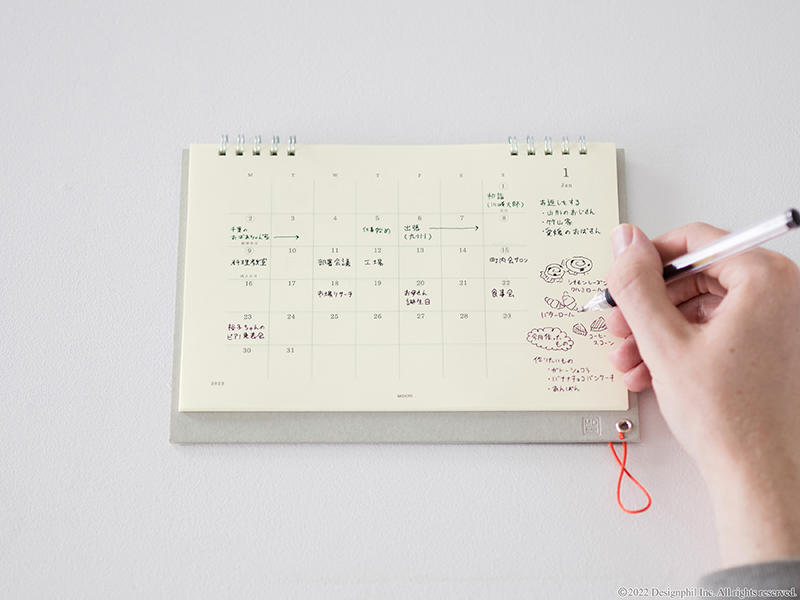 M T W T F S S
1
Jan
1
和詣
(川崎大師)
2 3 4 5 6 7 8
千葉の
おばあちゃん家
仕事始め
出張
(九州)
9 10 11 12 13 14 15
料理教室
部署会議
工場
町内会サロン
16 17 18 19 20 21 22
市場リサーチ
お母さん
誕生日
食事会
23 24 25 26 27 28 29
裕子ちゃんの
ピアノ発表会
30 31
2023
MIDORI
お返しをする
・山形のおじさん
・竹山家
・愛媛のおばさん
シナモンレーズン
クルミロール
バターロール
今月作った
もの
コーヒー
スコーン
作りたいもの
・ガトーショコラ
・バナナチョコパンケーキ
・あんぱん
MD
©2022 Designphil Inc. All rights reserved.